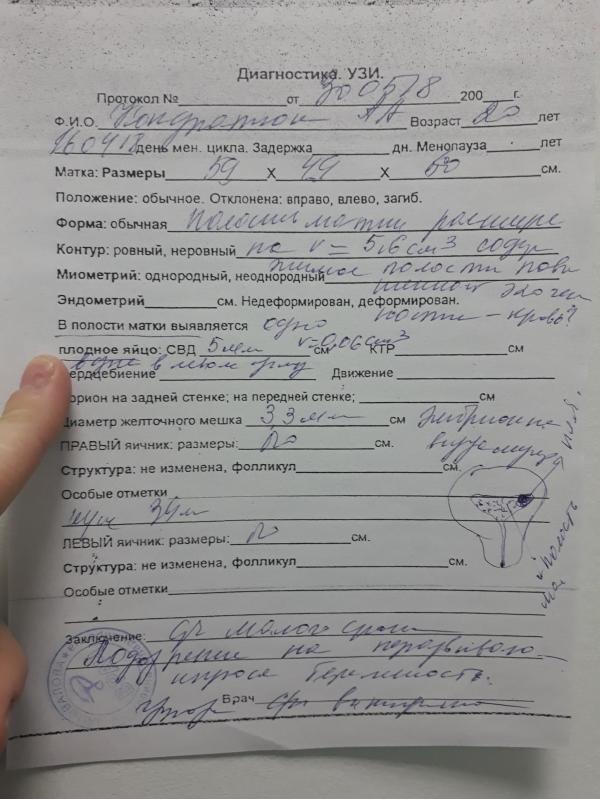 Диагностика. УЗИ.
Протокол № от 300518 200 г.
Ф.И.О. АА Возраст 20 лет
160418 день мен. цикла. Задержка дн. Менопауза лет
Матка: Размеры 59 X 49 X 60 см.
Положение: обычное. Отклонена: вправо, влево, загиб.
Форма: обычная Полость матки расшире
Контур: ровный, неровный на v = 5,6 см³ содер
Миометрий: однородный, неоднородный жимое полости повы
Эндометрий см. Недеформирован, деформирован. шенной эхоген
В полости матки выявляется одно ности – кровь?
плодное яйцо: СВД 5 мм см v=0,06 см³ КТР см
в левом углу
сердцебиение Движение
хорион на задней стенке; на передней стенке; см
Диаметр желточного мешка 33 мм см Эмбрион не
ПРАВЫЙ яичник: размеры: N см. визуализируется
Структура: не изменена, фолликул см.
Особые отметки
34
ЛЕВЫЙ яичник: размеры: N см.
Структура: не изменена, фолликул см.
Особые отметки
полость
Заключение: малого срока
Подозрение на неразвиваю
щуюся беременность.
Врач
Угроза